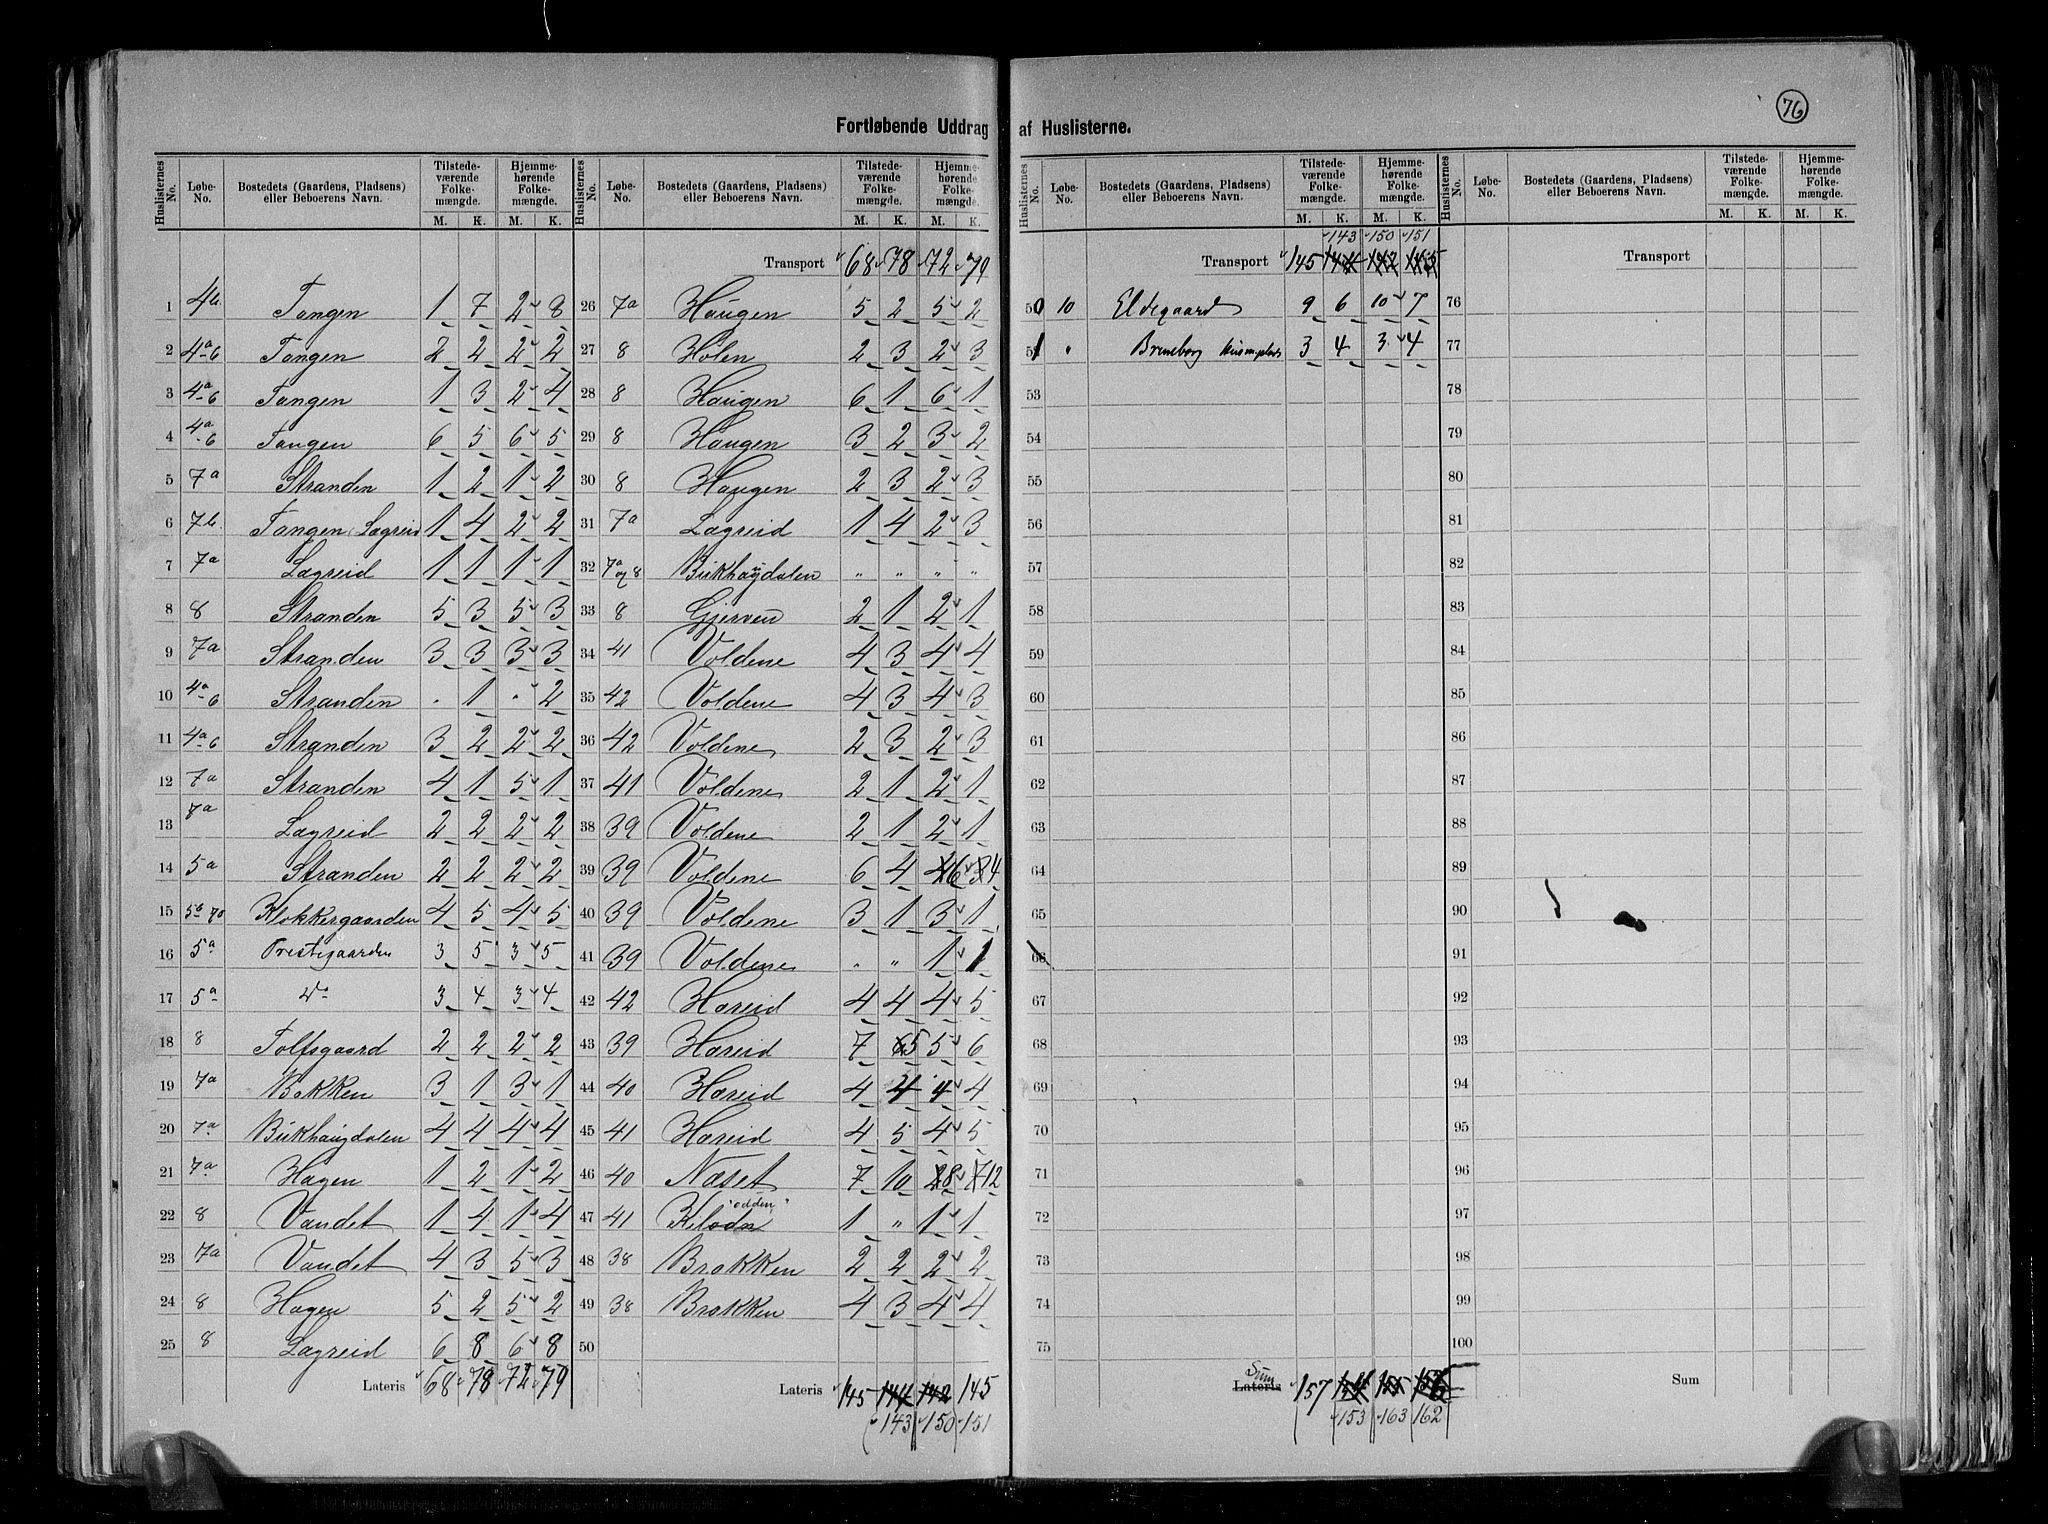 76
Fortløbende Uddrag af Huslisterne.
Huslisternes No. Løbe-No. Bostedets (Gaardens, Pladsens) eller Beboerens Navn. Tilstedeværende Folkemængde. Hjemmehørende Folkemængde. M. K. M. K.
1 4b. Tangen 1 7 2 8
2 4a-6 Tangen 2 2 2 2
3 4a-6 Tangen 1 3 2 4
4 4a-6 Tangen 6 5 6 5
5 7a Stranden 1 2 1 2
6 7b. Tangen, Lægreid 1 4 2 2
7 7a Lægreid 1 1 1 1
8 8 Stranden 5 3 5 3
9 7a Stranden 3 3 3 3
10 4a-6 Stranden . 1 . 2
11 4a-6 Stranden 3 2 2 2
12 7a Stranden 4 1 5 1
13 7a Lægreid 2 2 2 2
14 5a Stranden 2 2 2 2
15 5b 70 Klokkergaarden 4 5 4 5
16 5a Prestegaarden 3 5 3 5
17 5a Do 3 4 3 4
18 8 Tolfsgaard 2 2 2 2
19 7a Bakken 3 1 3 1
20 7a Bukhaugdalen 4 4 4 4
21 7a Hagen 1 2 1 2
22 8 Vandet 1 4 1 4
23 7a Vandet 4 3 5 3
24 8 Hagen 5 2 5 2
25 8 Lægreid 6 8 6 8
Lateris 68 78 72 79
Huslisternes No. Løbe-No. Bostedets (Gaardens, Pladsens) eller Beboerens Navn. Tilstedeværende Folkemængde. Hjemmehørende Folkemængde. M. K. M. K.
Transport 68 78 72 79
26 7a Haugen 5 2 5 2
27 8 Hølen 2 3 2 3
28 8 Haugen 6 1 6 1
29 8 Haugen 3 2 3 2
30 8 Haugen 2 3 2 3
31 7a Lægreid 1 4 2 3
32 7a og 8 Bukhaugdalen " " " "
33 8 Gjerven 2 1 2 1
34 41 Voldene 4 3 4 4
35 42 Voldene 4 3 4 3
36 42 Voldene 2 3 2 3
37 41 Voldene 2 1 2 1
38 39 Voldene 2 1 2 1
39 39 Voldene 6 4 4 6 3 4
40 39 Voldene 3 1 3 1
41 39 Voldene " " 1 1
42 42 Hæreid 4 4 4 5
43 39 Hæreid 7 6 5 5 6
44 40 Hæreid 4 4 4 4
45 41 Hæreid 4 5 4 5
46 40 Næset 7 10 8 12
"odden"
47 41 Kilodn 1 " 1 1
48 38 Brakken 2 2 2 2
49 38 Brakken 4 3 4 4
50
Lateris 145 144 142 145
143 150 151
Huslisternes No. Løbe-No. Bostedets (Gaardens, Pladsens) eller Beboerens Navn. Tilstedeværende Folkemængde. Hjemmehørende Folkemængde. M. K. M. K.
143 150 151
Transport 145 144 142 145
50 10 Eldegaard 9 6 10 7
51 " Breneborg Husmplads 3 4 3 4
53
54
55
56
57
58
59
60
61
62
63
64
65
66
67
68
69
70
71
72
73
74
75
Sum
Lateris 157
153 163 162
Huslisternes No. Løbe-No. Bostedets (Gaardens, Pladsens) eller Beboerens Navn. Tilstedeværende Folkemængde. Hjemmehørende Folkemængde. M. K. M. K.
Transport
76
77
78
79
80
81
82
83
84
85
86
87
88
89
90
91
92
93
94
95
96
97
98
99
100
Sum